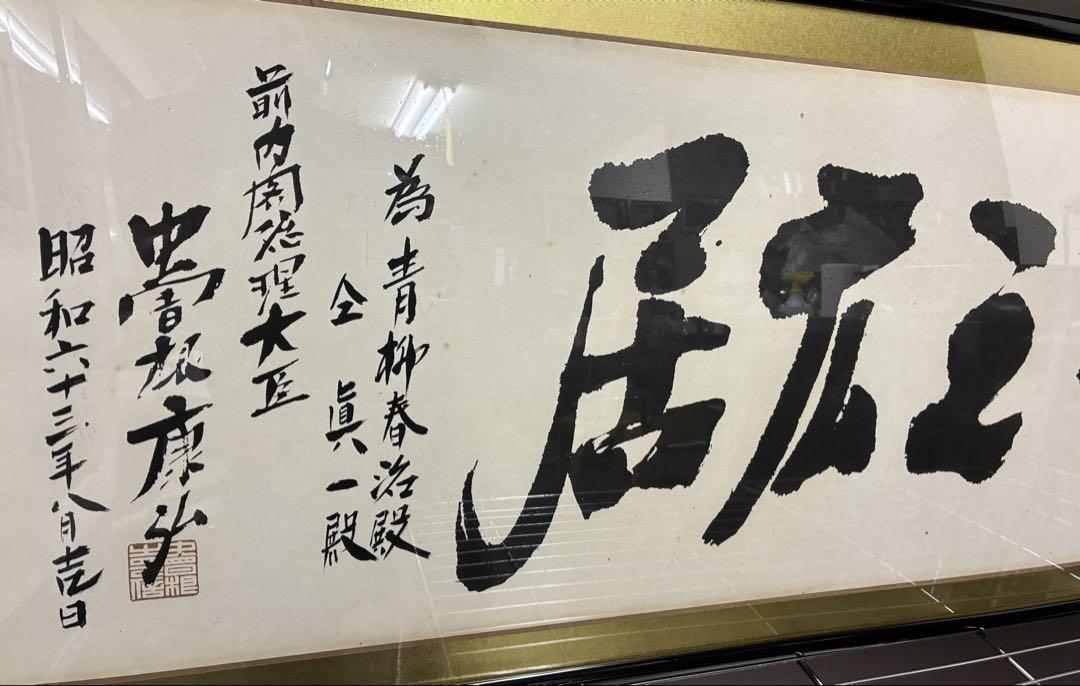 之広居
為青柳春治殿
仝眞一殿
前内閣総理大臣
中曽根康弘
昭和六十三年八月吉日